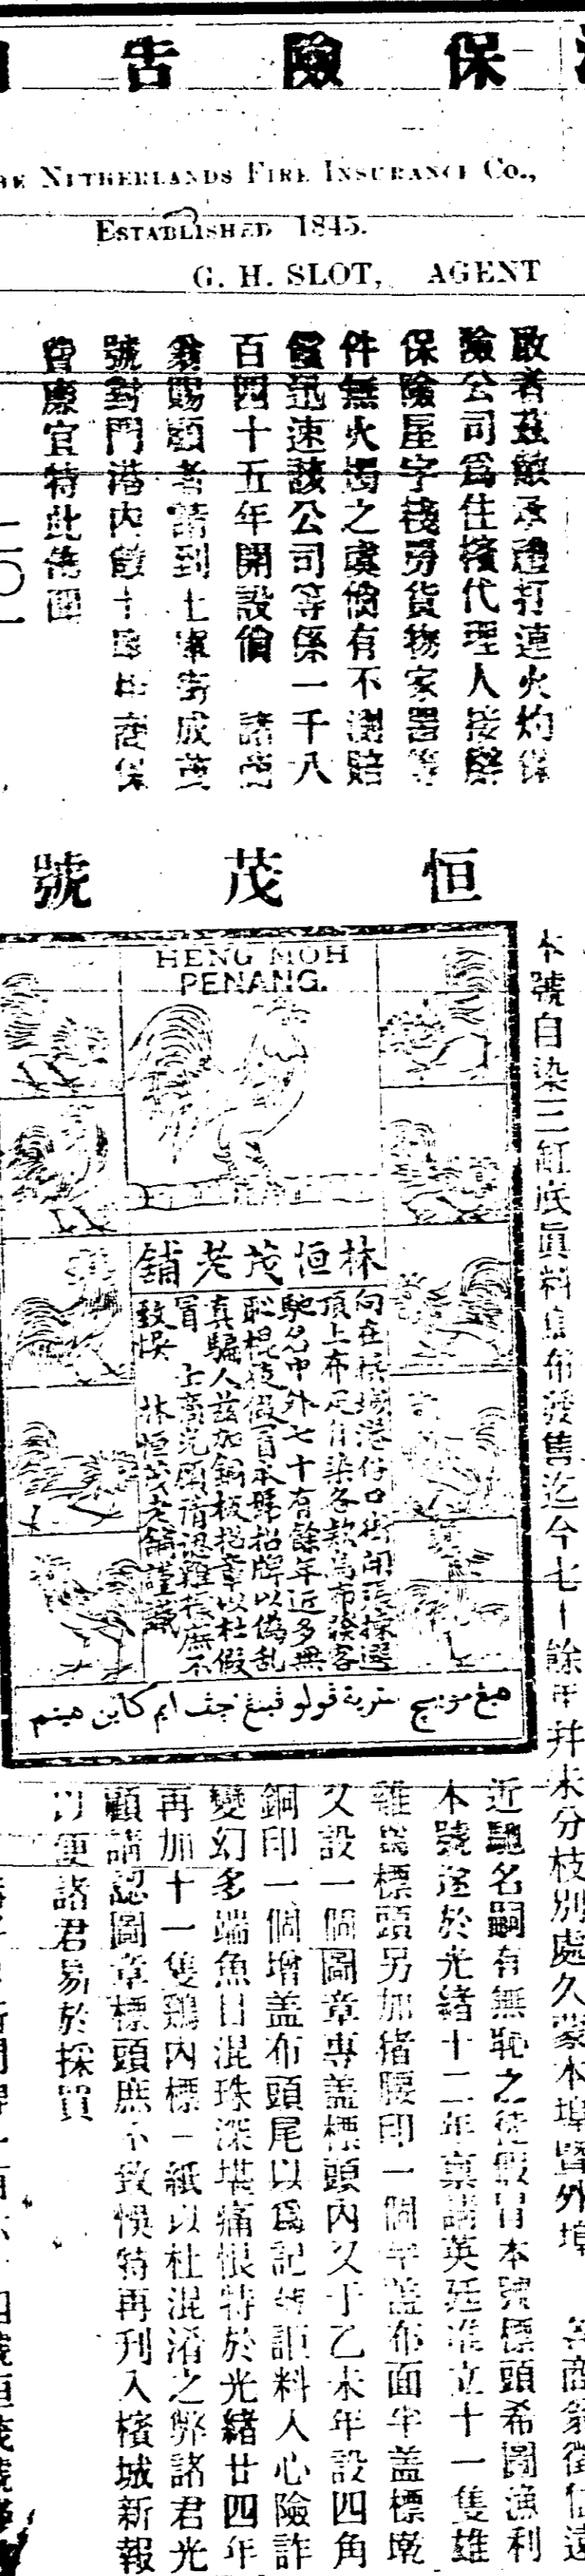 保險告
NETHERLANDS FIRE INSURANCE Co.,
ESTABLISHED 1845.
G. H. SLOT, AGENT
敬者茲敝承禮打連火灼保
險公司為住檳代理人接辦
保險屋宇棧房貨物家器等
件無火燭之虞倘有不測賠
償迅速該公司等係一千八
百四十五年開設倘 諸商
翁賜顧者請到土庫街成茂
號對門港內
特此佈聞
二〇一
恒茂號
HENG MOH
PENANG.
林恒茂老舖
向在檳城港仔口街開張揀選
頂上布疋自染各款烏布發客
馳名中外七十有餘年近多無
恥棍徒假冒本號招牌以偽乱
真騙人茲加銅板招章以杜假
冒 士商光顧請認雞標庶不
致悞 林恒茂老舖謹識
本號自染三缸底眞料烏布發售迄今七十餘年并未分枝別處久蒙本埠曁外埠 各商翁徵信遠
近馳名嗣有無恥之徒假冒本號標頭希圖漁利
本號遂於光緒十二年稟請英廷准立十一隻雄
雞為標頭另加猪腰印一個半盖布面半盖標
又設一個圖章專盖標頭內又于乙未年設四角
銅印一個增盖布頭尾以爲記號詎料人心險詐
變幻多端魚目混珠深堪痛恨特於光緒廿四年
再加十一隻鷄內標一紙以杜混淆之弊諸君光
顧請認圖章標頭庶不致悞特再刊入檳城新報
以便諸君易於採買